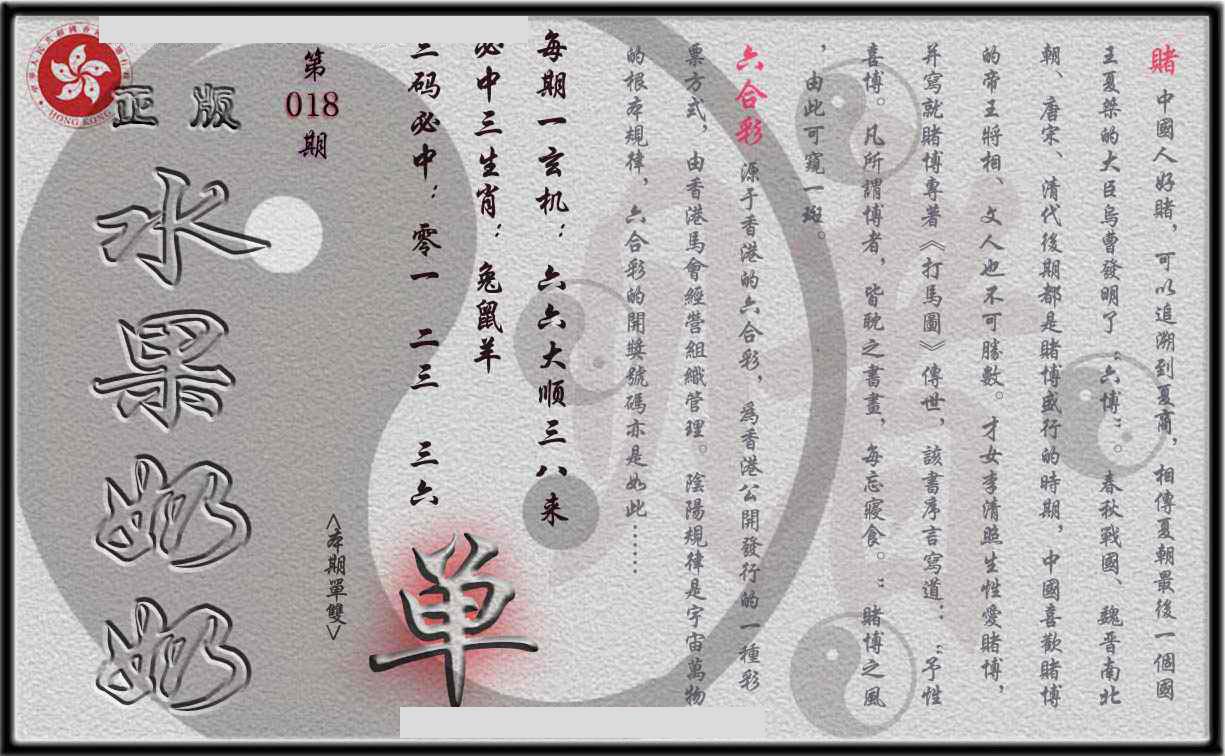 賭 中國人好賭，可以追溯到夏商，相傳夏朝最後一個國
王夏桀的大臣烏曹發明了“六博”。春秋戰國、魏晋南北
朝、唐宋、清代後期都是賭博盛行的時期，中國喜歡賭博
的帝王將相、文人也不可勝數。才女李清照生性愛賭博，
并寫就賭博專著《打馬圖》傳世，該書序言寫道：“予性
喜博。凡所謂博者，皆耽之書畫，每忘寢食。”賭博之風
，由此可窺一斑。
六合彩 源于香港的六合彩，爲香港公開發行的一種彩
票方式，由香港馬會經營組織管理。陰陽規律是宇宙萬物
的根本規律，六合彩的開獎號碼亦是如此……
每期一玄机：六六大顺三八来
必中三生肖：兔鼠羊
三码必中：零一 二三 三六
单
<本期單雙>
第
018
期
正版
水果奶奶
HONG KONG